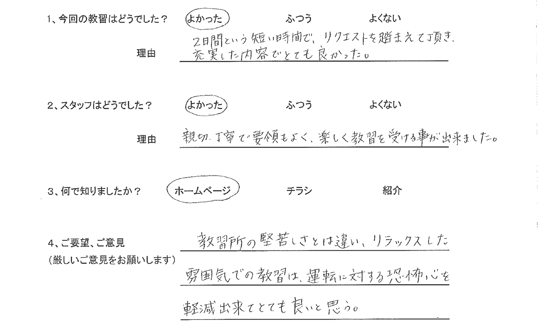 1、今回の教習はどうでした？ よかった ふつう よくない
2日間という短い時間で、リクエストを踏まえて頂き、
理由 充実した内容でとても良かった。
2、スタッフはどうでした？ よかった ふつう よくない
理由 親切、丁寧で要領もよく、楽しく教習を受ける事が出来ました。
3、何で知りましたか？ ホームページ チラシ 紹介
4、ご要望、ご意見 教習所の堅苦しさとは違い、リラックスした
(厳しいご意見をお願いします)
雰囲気での教習は、運転に対する恐怖心を
軽減出来てとても良いと思う。